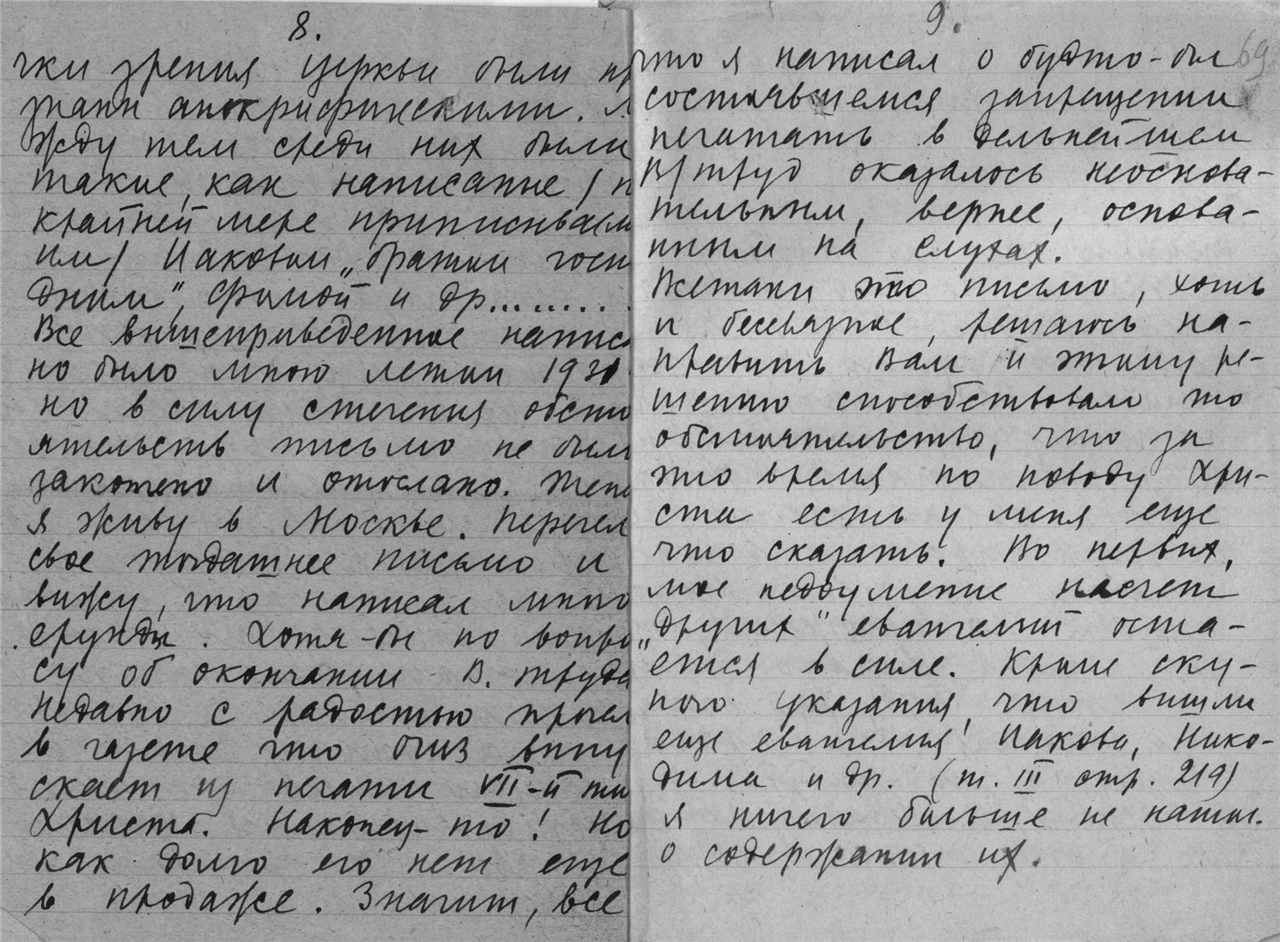 8.
чки зрения церкви были пр
знаны апокрифическими. М
жду тем среди них были
такие, как написанные / п
крайней мере приписываем
ым / Иаковым „братом госп
дним", Фомой и др.........
Все вышеприведенное написа
но было мною летом
но в силу стечения обсто
ятельств письмо не было
закончено и отослано. Тепе
я живу в Москве. Перечел
свое тогдашнее письмо и
вижу, что написал много
ерунды. Хотя-бы по вопро
су об окончании В. труда
недавно с радостью прочел
в газете что Огиз выпу
скает из печати VII-й том
Христа. Наконец-то! Но
как долго его нет еще
в продаже. Значит, все
9.
69
что я написал о будто-бы
состоявшемся запрещении
печатать в дальнейшем
В/труд оказалось неоснова-
тельным, вернее, основа-
нным на слухах.
Всетаки это письмо, хоть
и бессвязное, решаюсь на-
править Вам и этому ре-
шению способствовало то
обстоятельство, что за
это время по поводу Хри-
ста есть у меня еще
что сказать. Во первых,
мое недоумение насчет
„других" евангелий оста-
ется в силе. Кроме ску-
пого указания, что вышли
еще евангелия Иакова, Нико-
дима и др. (т. III стр. 219)
я ничего больше не нашел
о содержании их.